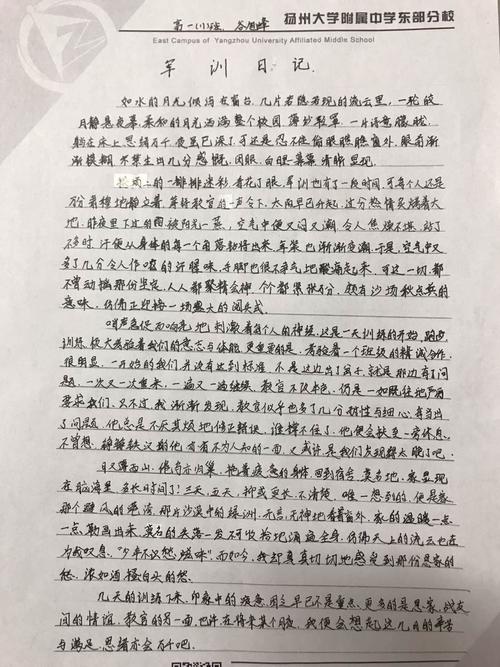 高一(1)班
扬州大学附属中学东部分校
East Campus of Yangzhou University Affiliated Middle School
军训日记
如水的月光倾泻在窗台，几片若隐若现的流云里，一轮皎
月静悬夜幕，柔和的月光洒满整个校园，薄纱轻罩，一片诗意朦胧
躺在床上思绪万千，夜虽已深了，可还是忍不住偷眼瞧瞧窗外，眼前渐
渐模糊，不禁生出几分感慨，闭眼，白日一幕幕清晰呈现。
一排排迷彩，看花了眼，军训也有了一段时间，可每个人还是
地静立着，等待教官一声令下，太阳早已升起，过分热情炙烤着大
地，昨夜里下过的雨，被阳光一蒸，空气中便又闷又潮，令人焦燥不堪，站了
不多时，汗便从身体的每一个角落都将出来，军装也渐渐变潮，于是，空气中又
多了几分令人作呕的汗腥味，手脚也很不争气地酸痛起来，可这一切，都
不曾动摇那份坚定，人人都聚精会神，个个都紧张万分，颇有沙场秋点兵的
意味，仿佛正迎接一场盛大的闯关式。
哨声急促而响亮地刺激着每个人的神经，这是一天训练的开始，跑步，
训练，极大考验着我们的意志与体能，更重要的是，考验着一个班级的精诚合作，
很明显，一开始的我们并没有达到标准，不是这边出了岔子，就是那边有了问
题，一次又一次重来，一遍又一遍继续，教官不改本色，仍是一如既往地严格
要求我们，又不过，我渐渐发现，教官似乎也多了几分韧性与细心，每当出
了问题，他总是不厌其烦地修正错误，谁撑不住了，他便会扶至一旁休息，
不曾想，铮铮铁汉的他有着不为人知的一面，又或许是我们发现得太晚了吧。
日又薄西山，倦鸟亦归巢，拖着疲惫的身体，回到宿舍，莫名地，家显现
在脑海里，多长时间了？三天，五天，抑或更长，不清楚，唯一想到的，便是家
那个避风的港湾，那片沙漠中的绿洲，无言，无神地看着窗外，家的温暖一点
一点，勾画出来，莫名的失落一发不可收拾地涌遍全身，仿佛天上的流云也在
为我叹息，“少年不识愁滋味”而如今，我却真真切切地感受到那份思家的
愁，浓如酒，撞白头的愁。
几天的训练下来，印象中的疲惫、困乏早已不是重点，更多的是思家，战友
间的情谊，教官的另一面，也许在将来某个夜，我便会想起，这几日的辛苦
与满足，思绪亦会万千吧。